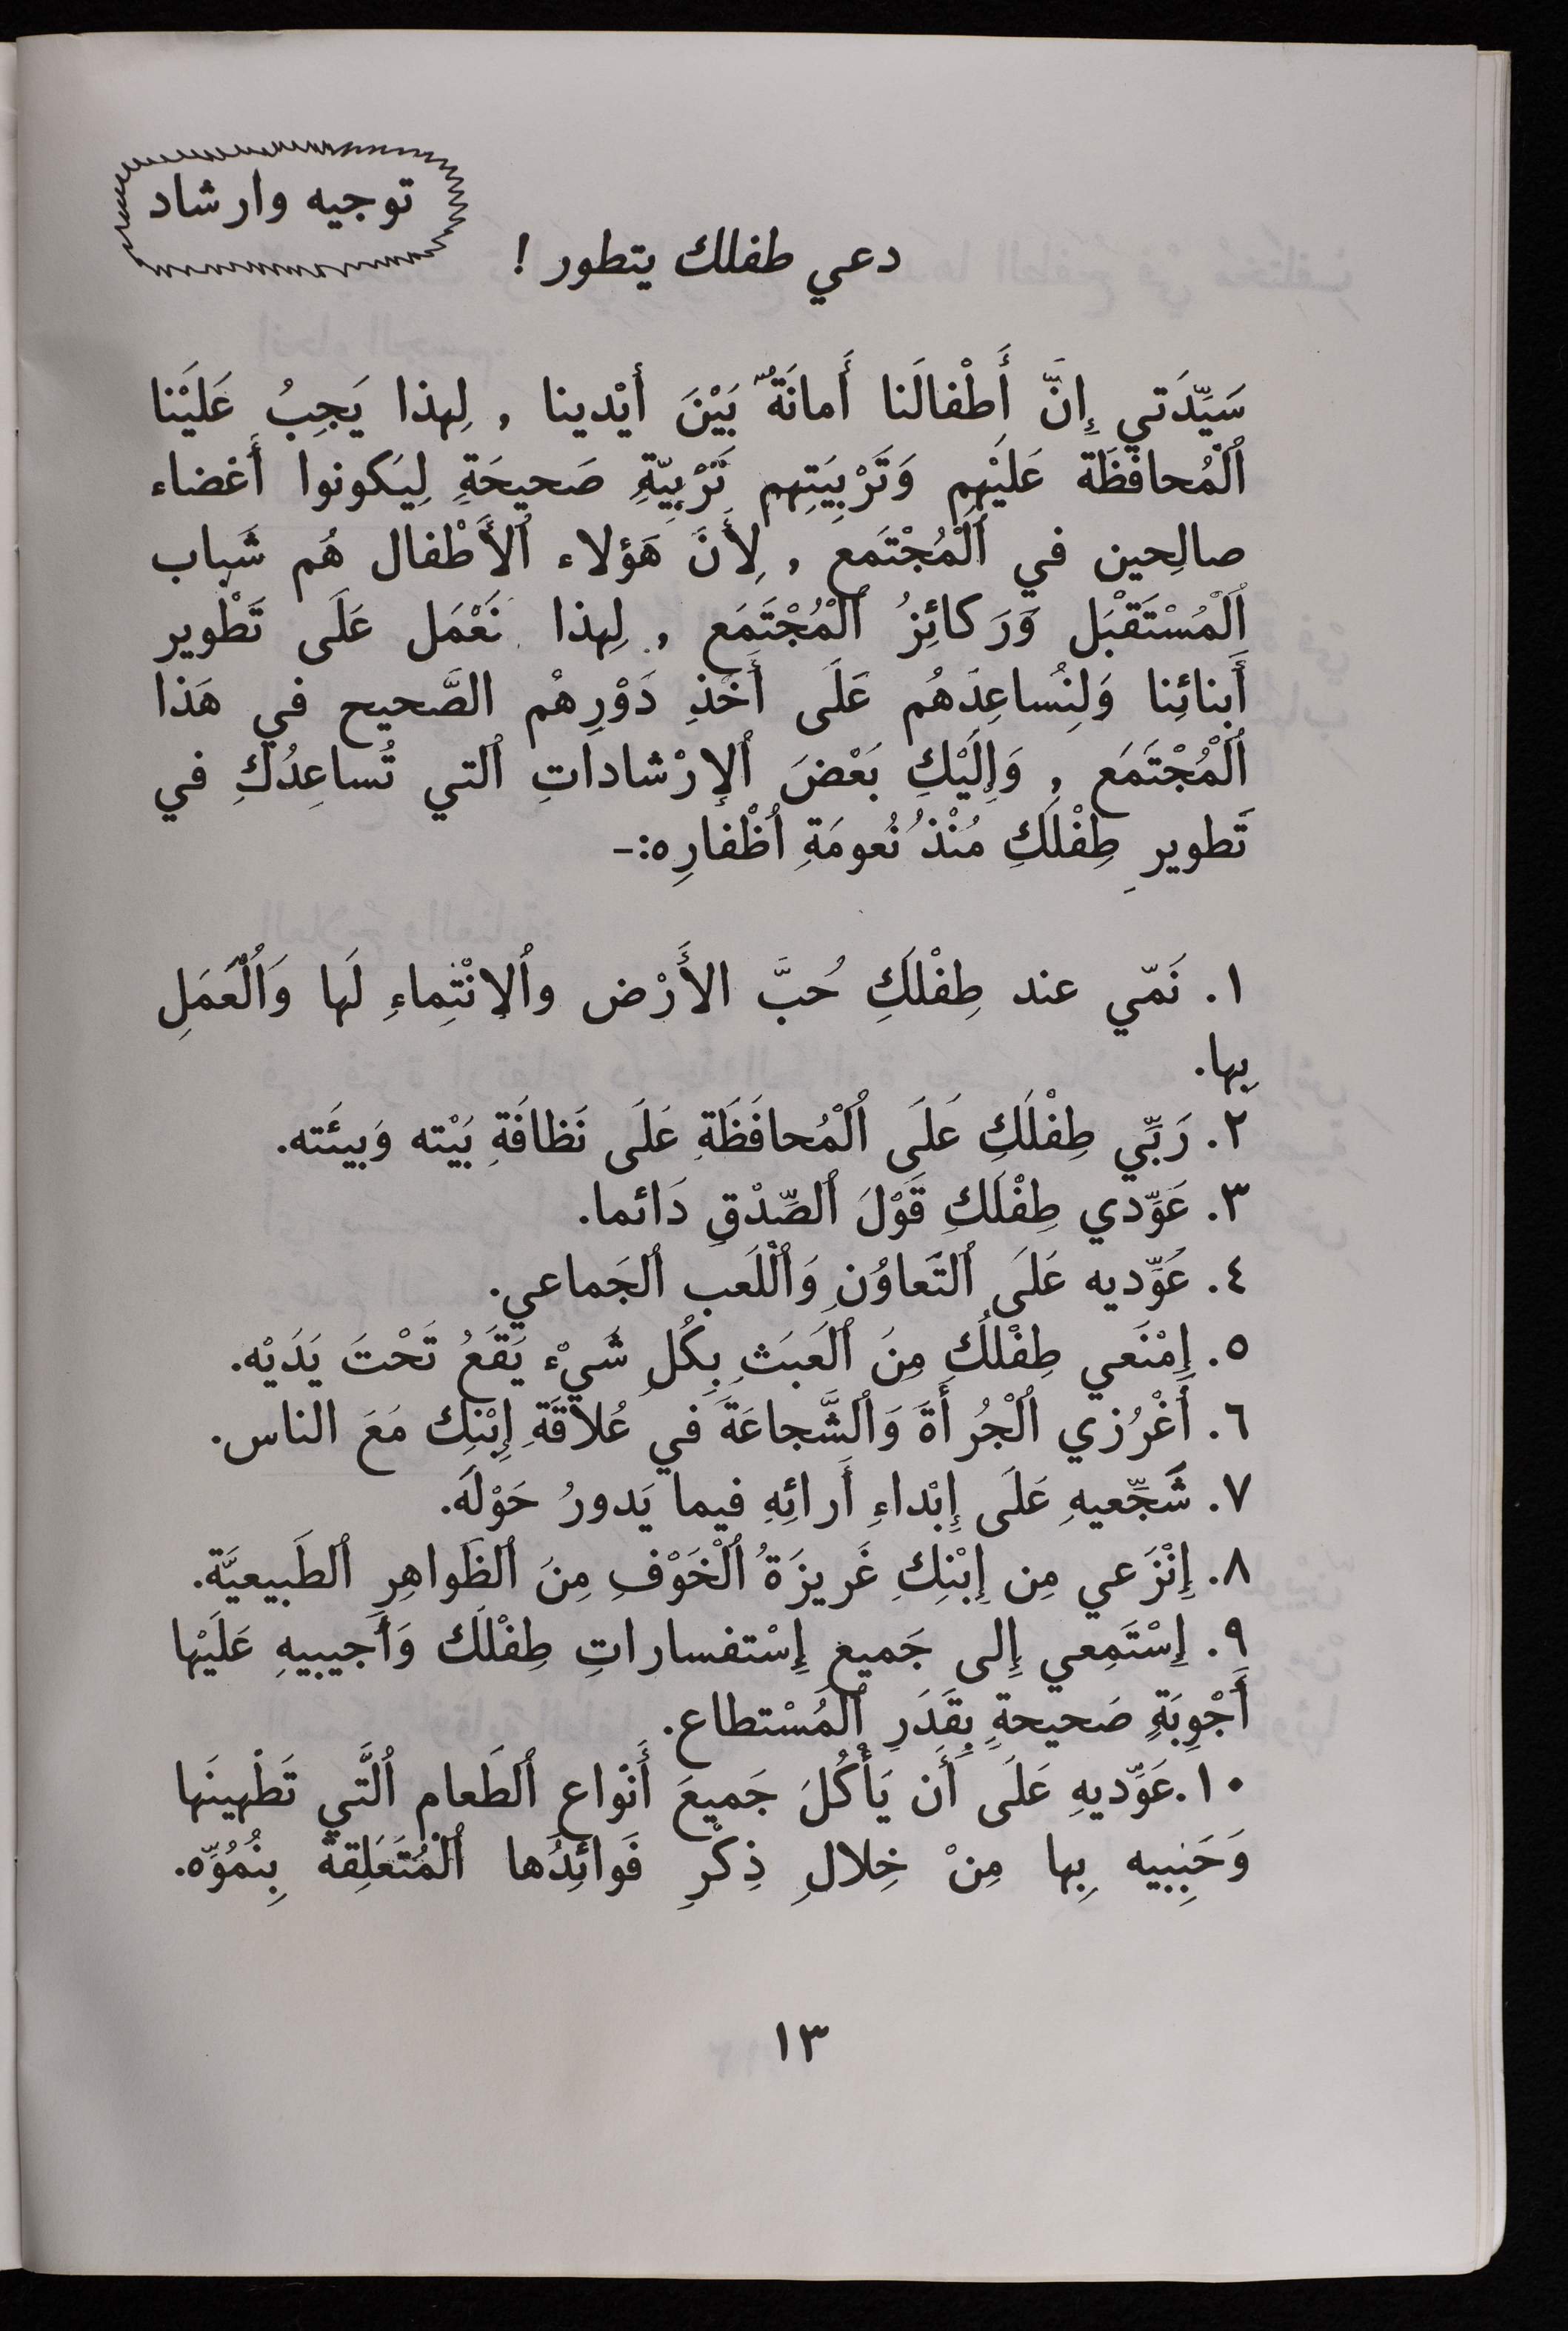 توجيه وارشاد
دعي طفلك يتطور !
سَيِّدَتي إِنَّ أَطْفالَنا أَمانَةٌ بَيْنَ أيْدينا , لِهذا يَجِبُ عَلَيْنا
ٱلْمُحافَظَة عَلَيْهِم وَتَرْبِيَتِهِم تَرْبِيّةِ صَحيحَةٍ لِيَكونوا أَعْضاء
صالِحين في ٱلْمُجْتَمَع , لِأَنَ هَؤلاء ٱلأَطْفال هُم شَباب
ٱلْمُسْتَقْبَل وَرَكائِزُ ٱلْمُجْتَمَع , لِهذا نَعْمَل عَلَى تَطْوير
أَبنائِنا وَلِنُساعِدَهُم عَلَى أَخْذِ دَوْرِهْم الصَّحيح في هَذا
ٱلْمُجْتَمَع , وَإِلَيْكِ بَعْضَ ٱلإرْشاداتِ ٱلتي تُساعِدُكِ في
تَطوير طِفْلَكِ مُنْذُ نُعومَةِ اُظْفارِه:-
١. نَمّي عند طِفْلَكِ حُبَّ الأَرْض وٱلإنْتِماءِ لَها وَٱلْعَمَلِ
بِها.
٢. رَبِّي طِفْلَكِ عَلَى ٱلْمُحافَظَةِ عَلَى نَظافَةِ بَيْته وَبيئَته.
٣. عَوِّدي طِفْلَكِ قَوْلَ ٱلصِّدْقِ دَائما.
٤. عَوِّديه عَلَى ٱلتَّعاوُن وَٱلْلَعب ٱلجَماعي.
٥. إِمْنَعي طِفْلُكِ مِنَ ٱلَعَبَثِ بِكُلِ شَيْء يَقَعُ تَحْتَ يَدَيْه.
٦. أَغْرُزي ٱلْجُرأَةَ وَٱلشَّجاعَةَ في عُلاقَةِ إِبْنِك مَعَ الناس.
٧. شَجِّعيهِ عَلَى إِبْداءِ أَرائِهِ فيما يَدورُ حَوْلَه.
٨. إِنْزَعي مِن إِبْنِكِ غَريزَةُ ٱلْخَوْفِ مِنَ ٱلظَواهِرِ ٱلطَبيعيَّة.
٩. إِسْتَمِعي إِلى جَميع إِسْتفساراتِ طِفْلَك وَأَجيبيهِ عَلَيْها
أَجْوِبَةٍ صَحيحةٍ بِقَدَرِ ٱلمُسْتطاع.
١٠.عَوِّديهِ عَلَى أَن يَأْكُلَ جَميعَ أَنْواع ٱلطَعام ٱلَّتي تَطْهينَها
وَحَبِبيه بِها مِنْ خِلالِ ذِكْرِ فَوائِدُها ٱلْمُتَعَلِقة بِنُمُوِّه.
١٣